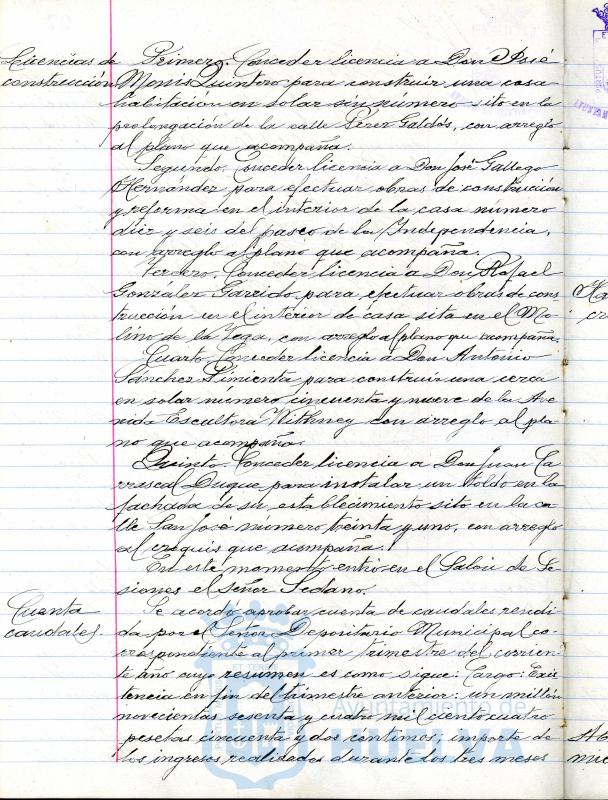 Licencias de
construcción
Primero. Conceder licencia a Don José
Monis Quintero para construir una casa
habitación en solar sin número sito en la
prolongación de la calle Pérez Galdós, con arreglo
al plano que acompaña.
Segundo. Conceder licencia a Don José Gallego
Hernandez para efectuar obras de construcción
y reforma en el interior de la casa número
diez y seis del paseo de la Independencia,
con arreglo al plano que acompaña.
Tercero. Conceder licencia a Don Rafael
González Garrido para efectuar obras de cons
trucción en el interior de casa sita en el Mo-
lino de la Vega, con arreglo al plano que acompaña.
Cuarto. Conceder licencia a Don Antonio
Sánchez Pimienta para construir una cerca
en solar número cincuenta y nueve de la Ave
nida Escultora Withney con arreglo al pla
no que acompaña.
Quinto. Conceder licencia a Don Juan Ca
rrascal Duque para instalar un toldo en la
fachada de su establecimiento sito en la ca
lle San José número treinta y uno, con arreglo
al croquis que acompaña.
En este momento entró en el Salón de Se
siones el señor Sedano.
Cuenta
caudales.
Se acordo aprobar cuenta de caudales rendi
da por el Señor Depositario Municipal co-
rrespondiente al primer trimestre del corrien
te año cuyo resumen es como sigue: Cargo: Exis
tencia en fin del trimestre anterior: un millón
novecientas sesenta y cuatro mil ciento cuatro
pesetas cincuenta y dos centimos; importe de
los ingresos realizados durante los tres meses
Ayuntamiento de
HUELVA